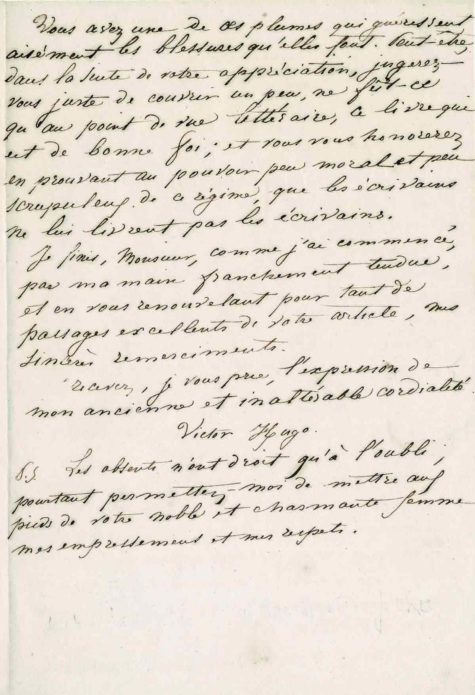 Vous avez une de ces plumes qui guérissent
aisément les blessures qu'elles font. Peut-être,
dans la suite de votre appréciation, jugerez-
vous juste de couvrir un peu, ne fût-ce
qu'au point de vue littéraire, ce livre qui
est de bonne foi; et vous vous honorerez
en prouvant au pouvoir peu moral et peu
scrupuleux de ce régime, que les écrivains
ne lui livrent pas les écrivains.
Je finis, Monsieur, comme j'ai commencé,
par ma main franchement tendue,
et en vous renouvelant pour tant de
passages excellents de votre article, mes
sincères remerciments.
recevez, je vous prie, l'expression de
mon ancienne et inaltérable cordialité.
Victor Hugo.
P.S. Les absents n'ont droit qu'à l'oubli,
pourtant permettez-moi de mettre aux
pieds de votre noble et charmante femme
mes empressements et mes respects.